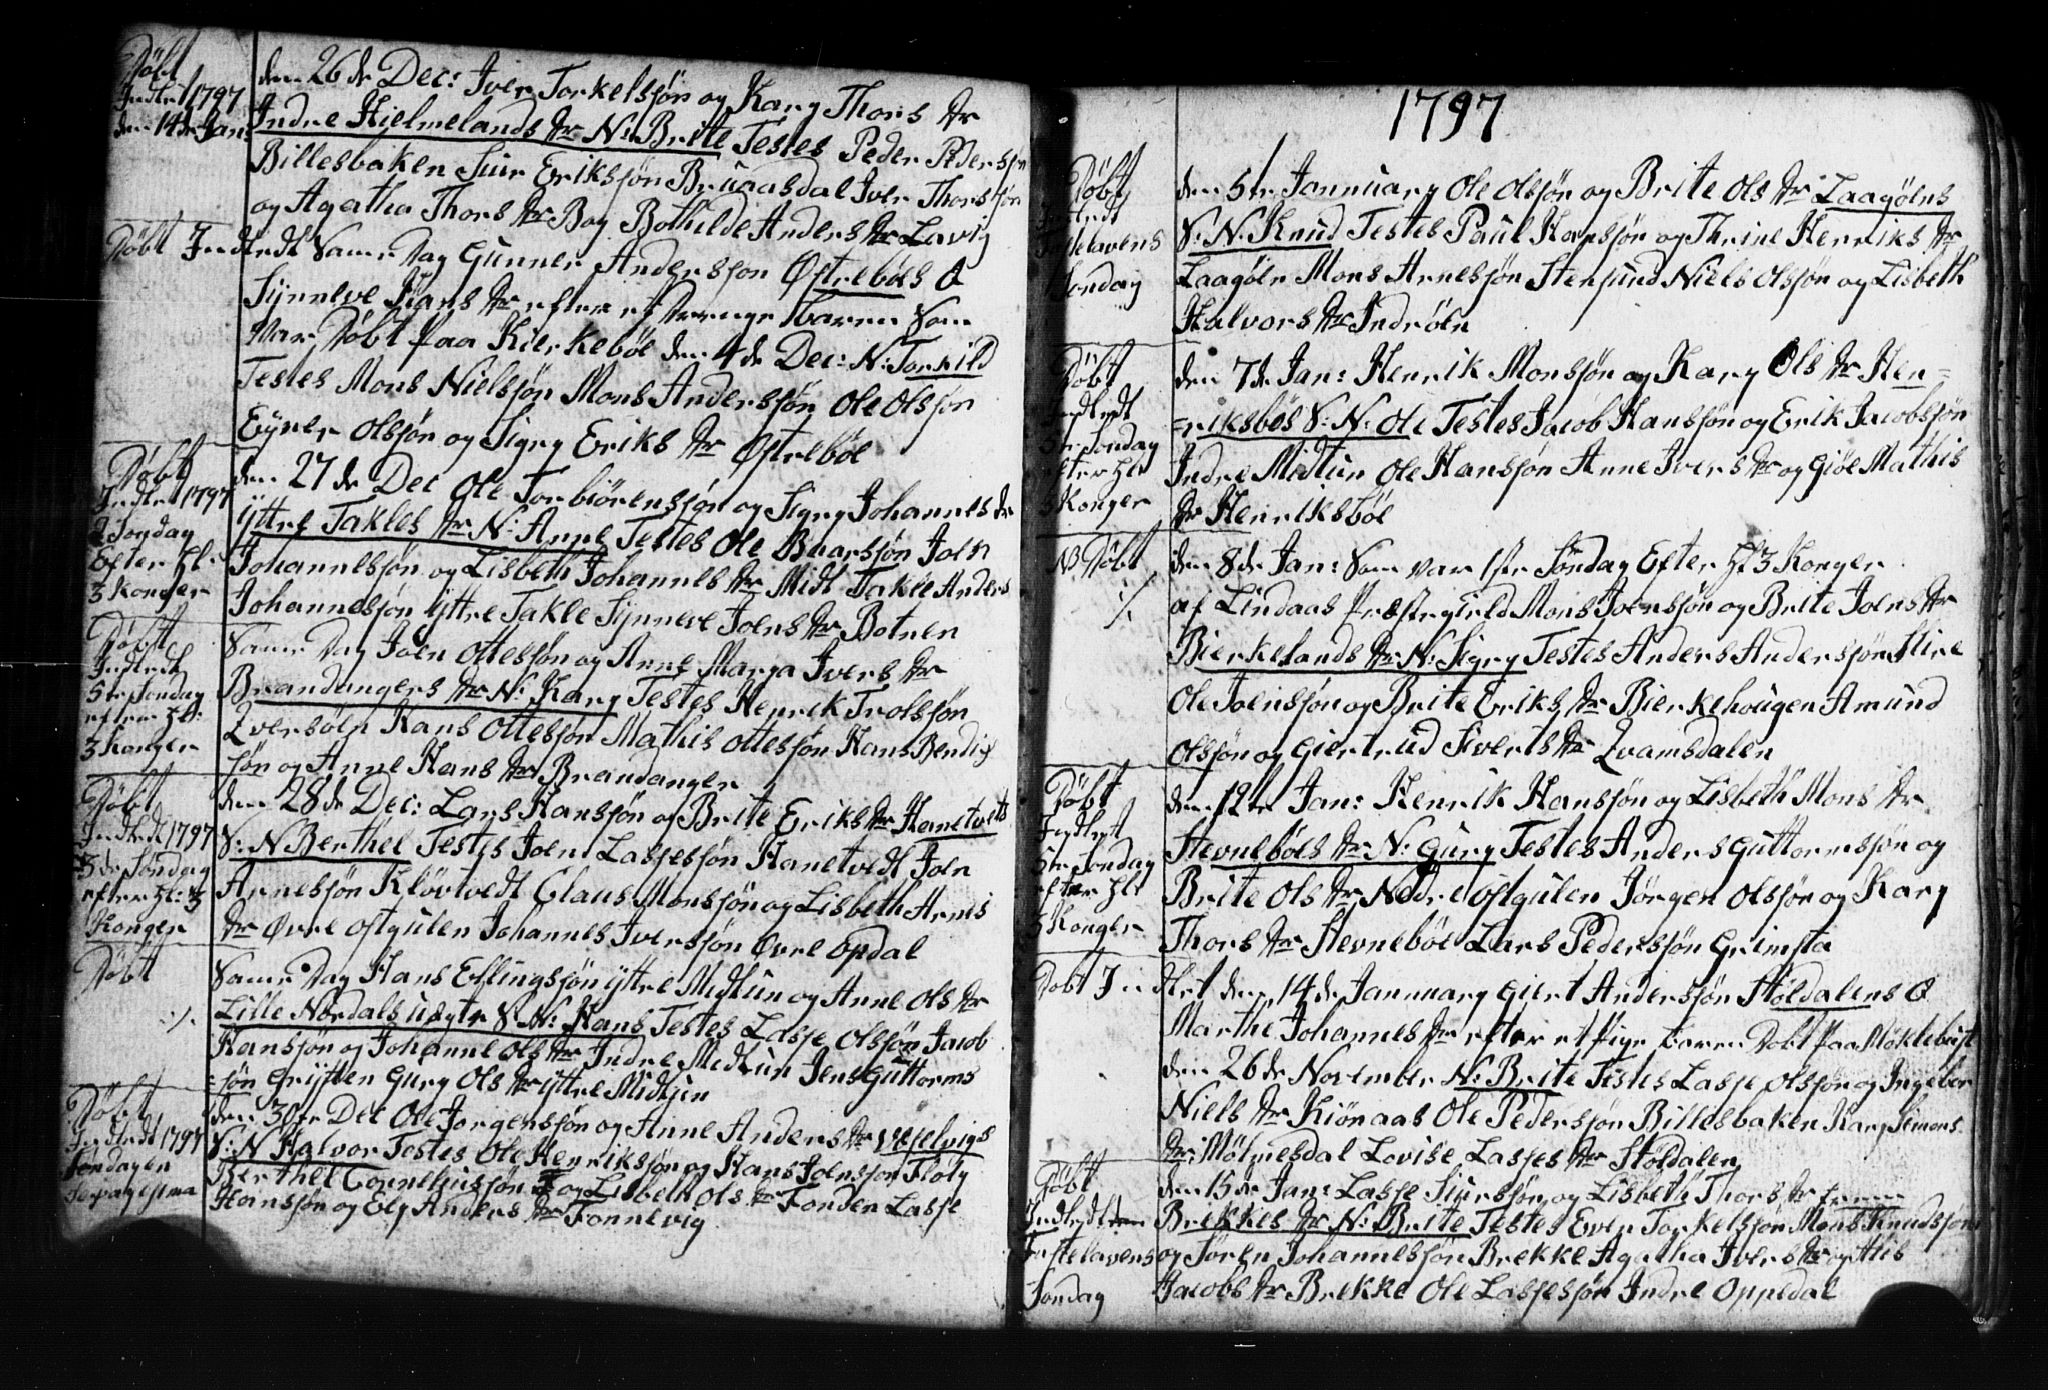 Døbt
Indledt 1797
den 14de Jan:
den 26de Dec: Iver Torkelsøn og Kary Thors dr
Indre Hielmelands dr N: Brite Testes Peder Pedersøn
Billesbaken Siur Eriksøn Bruaasdal Iver Thorssøn
og Agatha Thors dr Bøy Bothilde Anders dr Lavig
Døbt Indledt Samme Dag Gunner Anderssøn Østrebøes D
Synneve Hans dr efter et Drenge Baren Som
Var Døbt paa Kierkebøe den 4de Dec: N: Torkild
Testes Mons Nielsøn Mons Anderssøn Ole Olsøn
Eyner Olsøn og Sigry Eriks dr Østrebøe
Døbt
Indledt 1797
2 Søndag
Efter Hl:
3 Konger
den 27de Dec Ole Torbiørensøn og Sigry Johannes dr
Yttre Takles dr N: Anne Testes Ole Baarsøn Joen
Johannessøn og Lisbeth Johannes dr Midt Takle Anders
Johannessøn Yttre Takle Synneve Joens dr Botnen
Døbt
Indledt
5te Søndag
efter Hl:
3 Konger
Samme Dag Joen Ottesøn og Anne Marga Ivers dr
Brandangers dr N: Kary Testes Henrik Trolsøn
Qversøen Hans Ottesøn Mathis Ottesøn Hans Bendix
søn og Anne Hans dr Brandanger
Døbt
Indledt 1797
3de Søndag
efter Hl: 3
Konger
den 28de Dec: Lars Hansøn og Brite Eriks dr Hanetvets
S: N Berthel Testes Joen Lassesøn Hanetvedt Joen
Arnesøn Kløvtvedt Claus Monsøn og Lisbeth Arnes
dr Øvre Ostgulen Johannes Iversøn Øvre Opdal
Døbt
./.
Samme Dag Hans Ellingsøn Yttre Midtun og Anne Ols dr
Lille Nordals uægte S: N: Hans Testes Lasse Olsøn Jacob
Hansøn og Johanne Ols dr Indre Midtun Jens Guttorms
=søn Gryften Gury Ols dr Yttre Midtun
Døbt
Indledt 1797
Søndagen
Sexagesima
den 30te Dec Ole Jørgensøn og Anne Anders dr Veselvigs
S: N Halvor Testes Ole Henriksøn og Hans Joensøn Floly
Berthel Corneliussøn og Lisbeth Ols dr Fonden Lasse
Hansøn og Ely Anders dr Fonnevig
1797
Døbt
Indledt
Fastelavens
Søndag
den 5te Januuary Ole Olsøn og Brite Ols dr Laagøens
S: N: Knud Testes Paul Hansøn og Thrine Henriks dr
Laagøen Mons Arnesøn Stensund Niels Olsøn og Lisbeth
Halvors dr Indrøen
Døbt
Indledt
5te Søndag
efter Hl:
3 Konger
den 7de Jan: Henrik Monsøn og Kary Ols dr Hen=
=riksbøs S: N: Ole Testes Jacob Hansøn og Erik Jacobsøn
Indre Midtun Ole Hansøn Anne Ivers dr og Giøe Mathis
dr Henriksbøe
NB Døbt
./.
den 8de Jan: Som var 1ste Søndag Efter Hl 3 Konger
af Lindaas Præstegield Mons Joensøn og Brite Joens dr
Bierkelands dr N: Sigry Testes Anders Anderssøn Stire
Ole Joensøn og Brite Eriks dr Bierkehougen Amund
Olsøn og Giertrud Siverts dr Qvamsdalen
Døbt
Indledt
5te Søndag
efter Hl:
3 Konger
den 12te Jan: Henrik Hansøn og Lisbeth Mons dr
Stevnebøes dr N: Gury Testes Anders Guttormsøn og
Brite Ols dr Nedre Ostgulen Jørgen Olsøn og Kary
Thors dr Stevnebøe Lars Pedersøn Grimsta
Døbt Indledt den 14de Januuary Giert Anderssøn Støldalens D
Marthe Johannes dr efter et Pige Baren Døbt paa Møklebust
den 26de November N: Brite Testes Lasse Olsøn og Ingebor
Niels dr Kiønaas Ole Pedersøn Billesbaken Kary Simons
dr Mølmesdal Lovise Lasses dr Støldalen
Døbt
Indledt
Fastelavens
Søndag
den 15de Jan: Lasse Siursøn og Lisbeth Thors dr
Brekkes dr N: Brite Testes Even Torkelsøn Mons Knudsøn
og Søren Johannessøn Brekke Agatha Ivers dr og Alis
Jacobs dr Brekke Ole Lassesøn Indre Oppedal